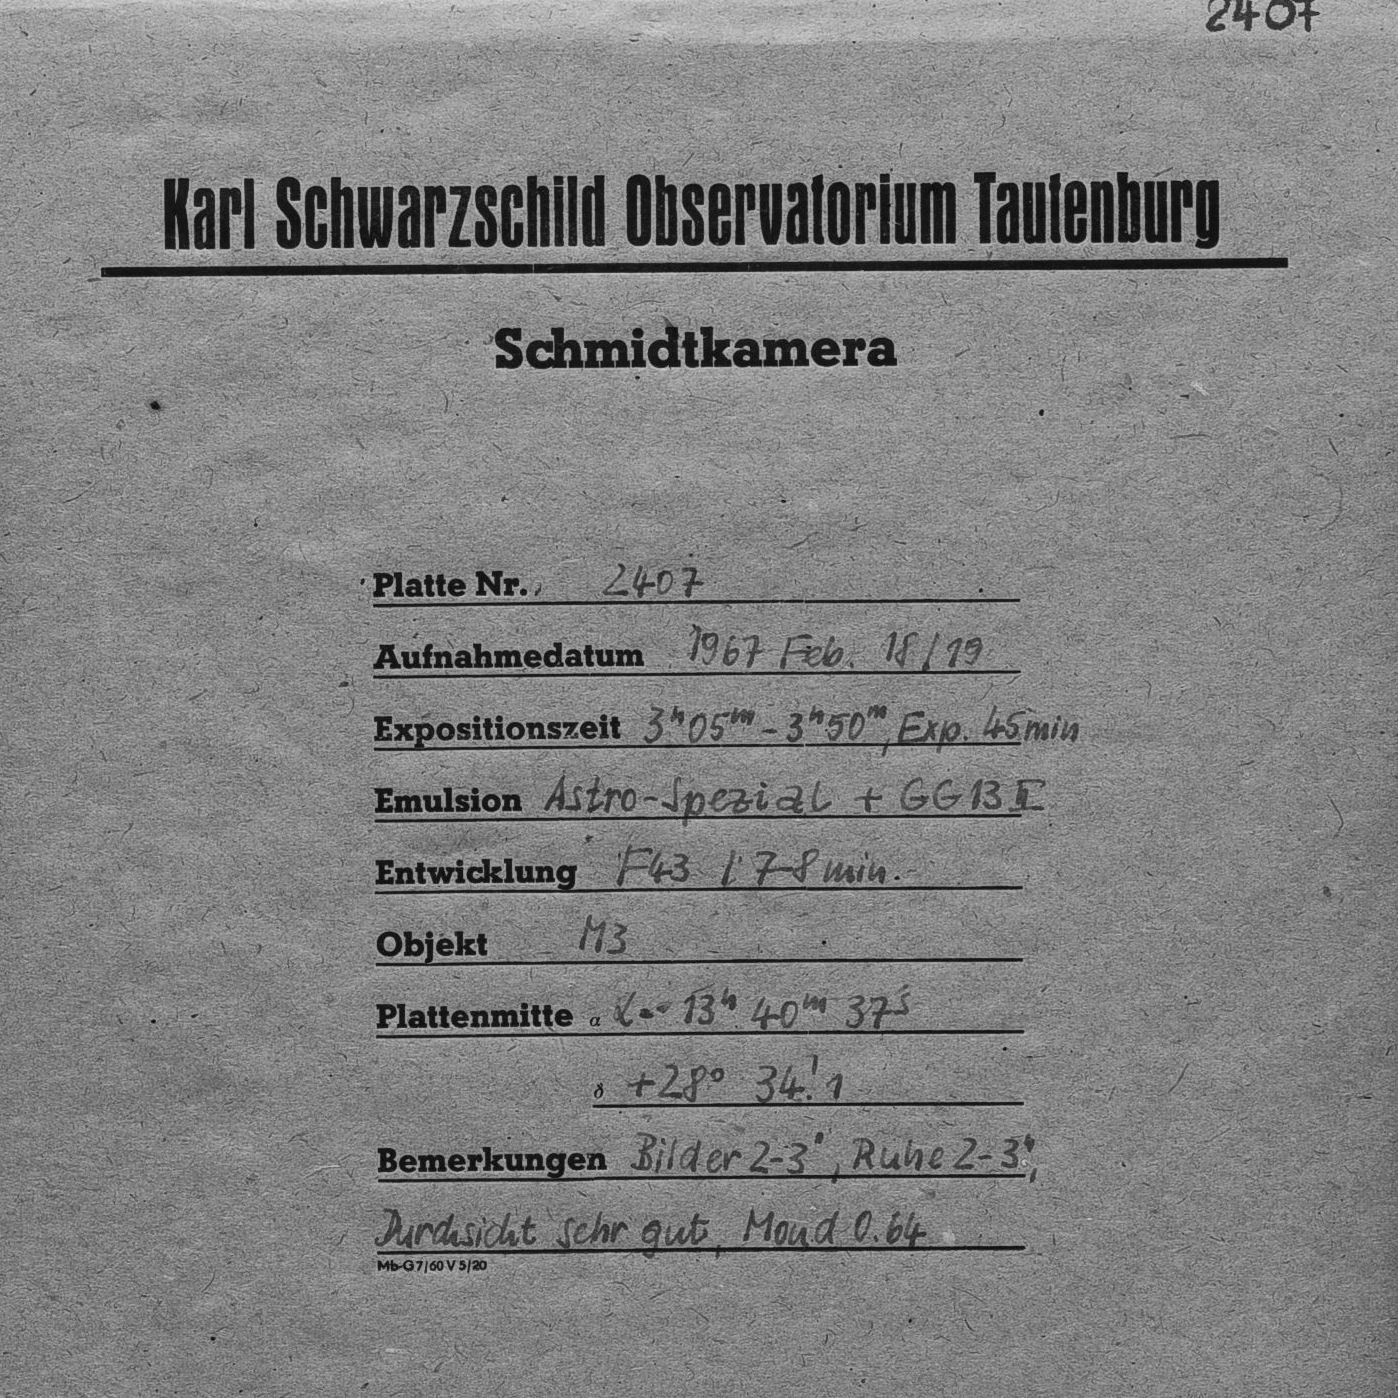 2407
Karl Schwarzschild Observatorium Tautenburg
Schmidtkamera
Platte Nr. 2407
Aufnahmedatum 1967 Feb. 18/19
Expositionszeit 3ʰ05ᵐ - 3ʰ50ᵐ, Exp. 45min
Emulsion Astro-Spezial + GG13
Entwicklung F43 7-8 min.
Objekt M3
Plattenmitte α 13ʰ 40ᵐ 37ˢ
δ +28° 34.'1
Bemerkungen Bilder 2-3", Ruhe 2-3",
Durchsicht sehr gut, Mond 0.64
Mb-G 7/60 V 5/20